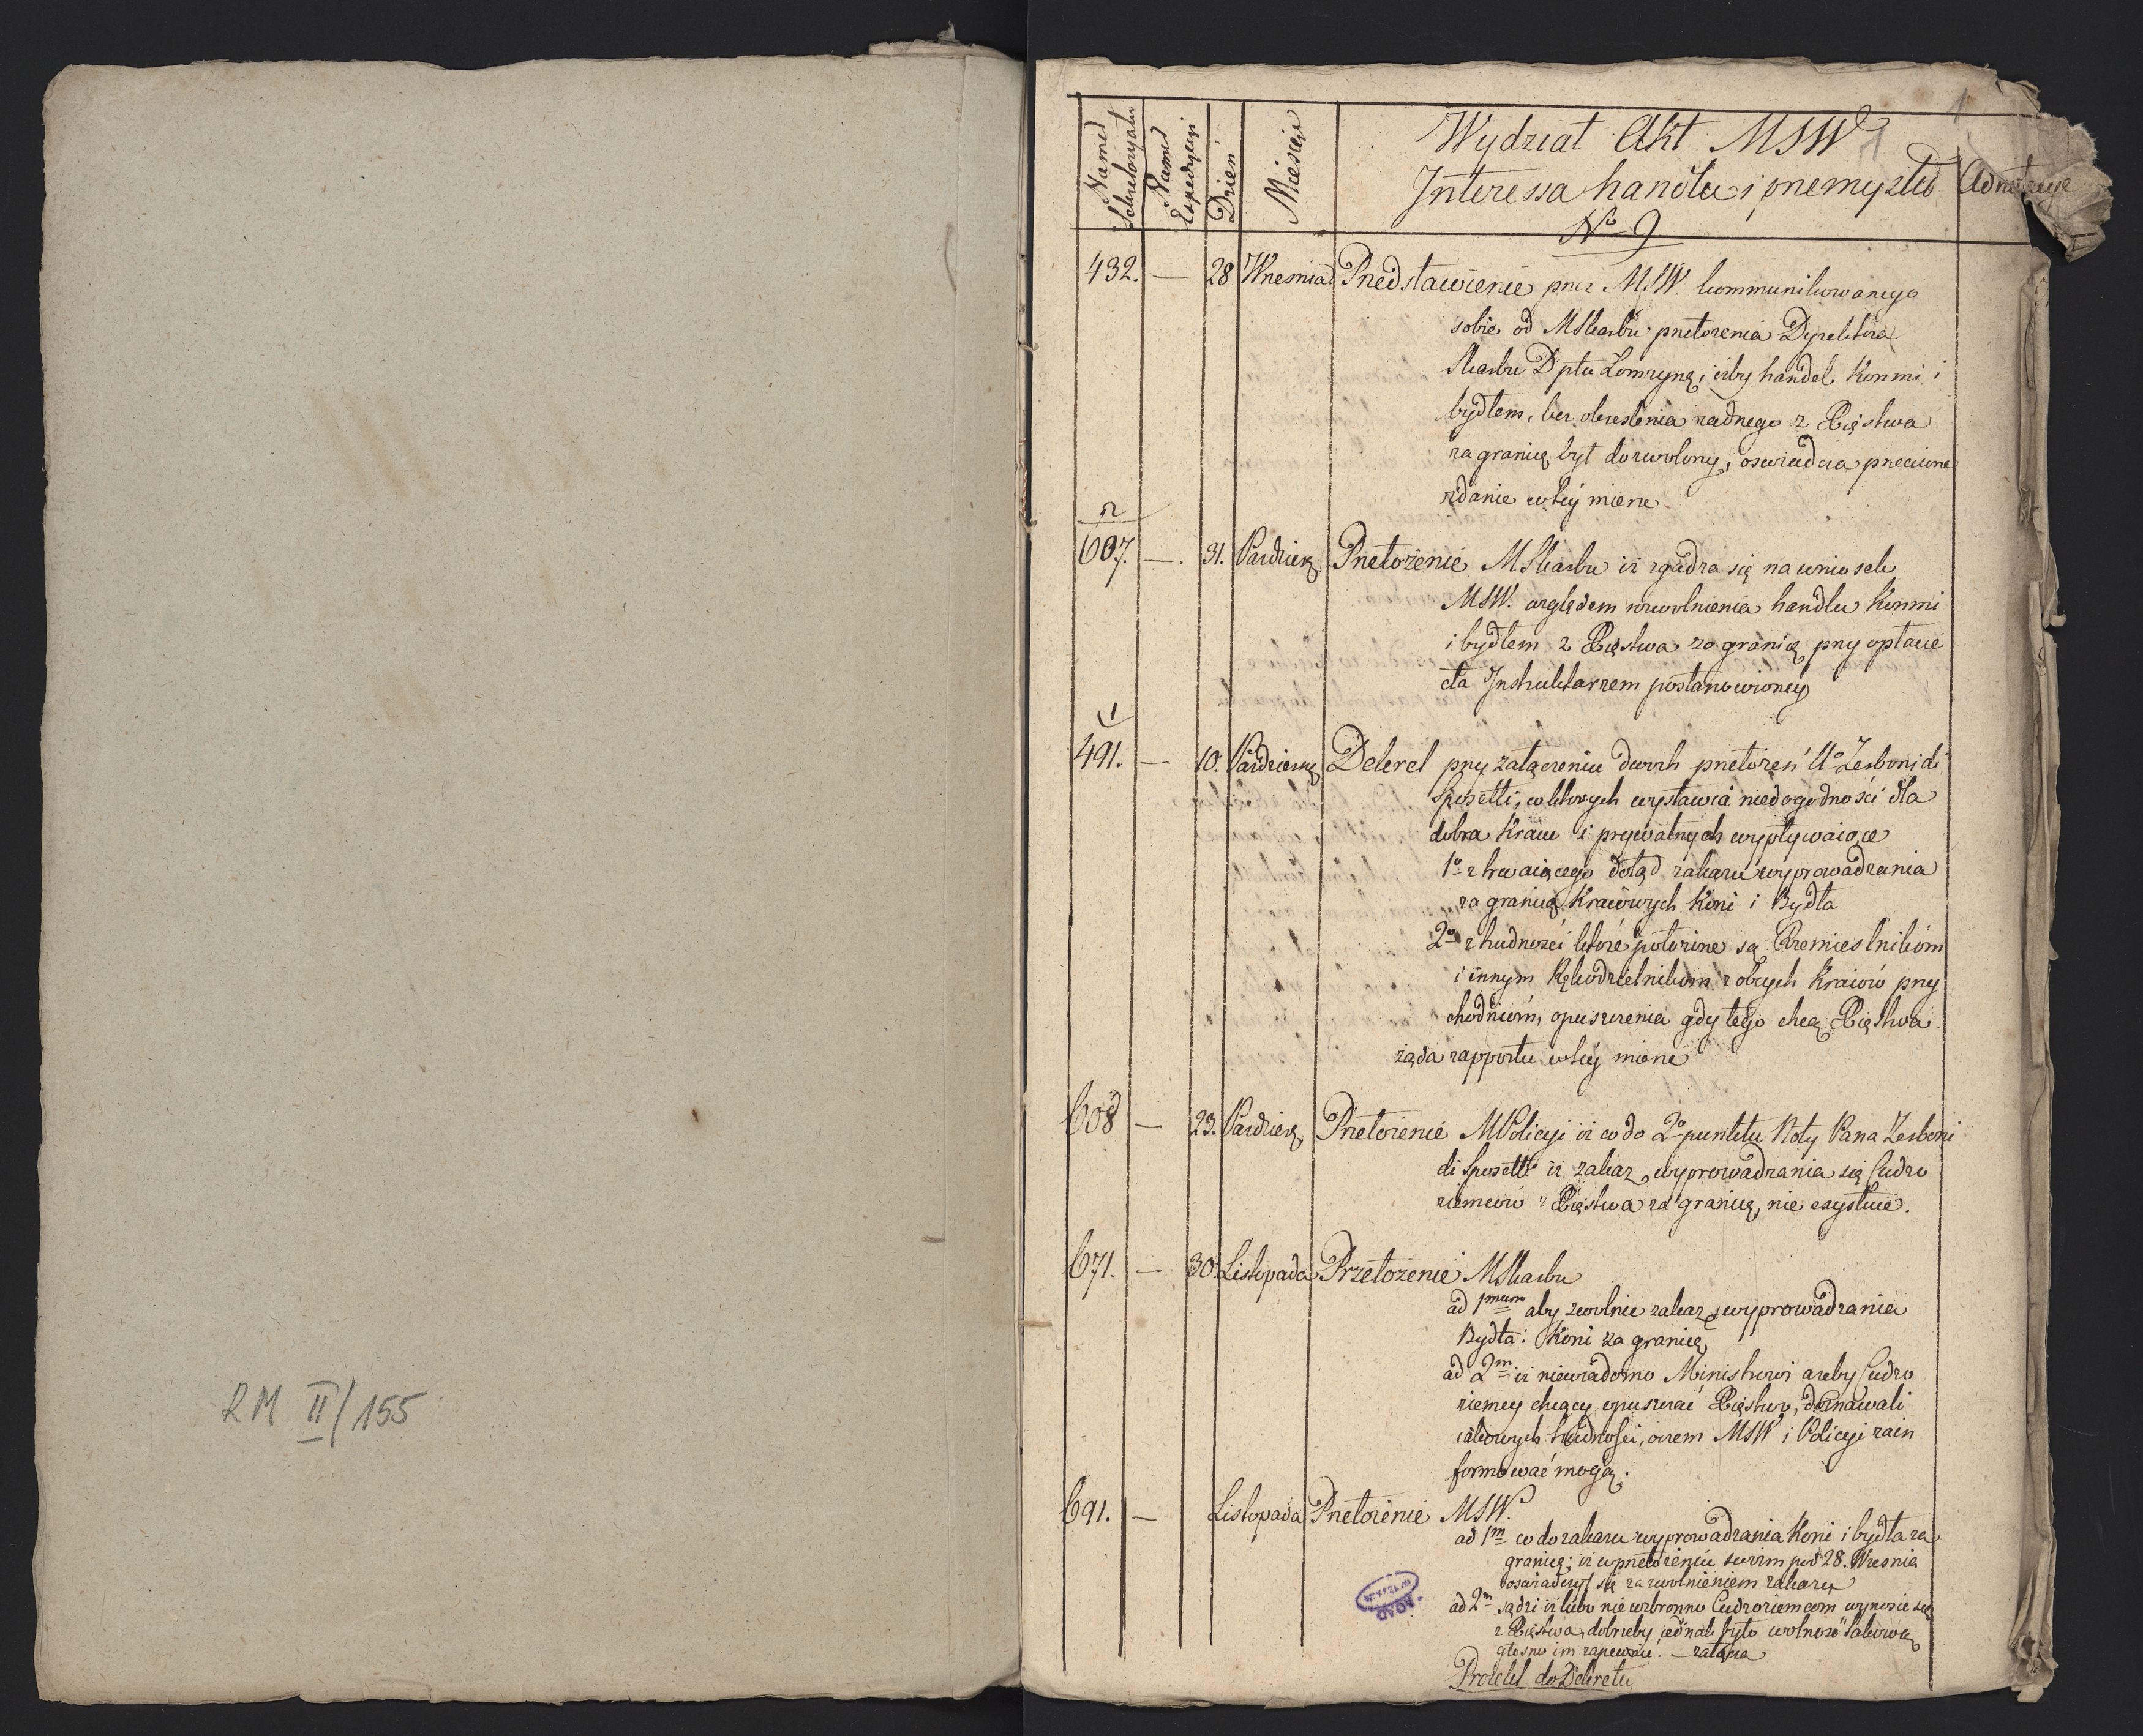 RM II/155
1
Numer Sekretaryatu
Numer Expedycyi
Dzień
Miesiąc
Wydział Akt MSW
Interessa handlu i przemysłu
Adnotacye
No 9
432. — 28. Wrzesnia Przedstawienie przez MSW. kommunikowanego
sobie od MSkarbu przełożenia Dyrektora
Skarbu Dptu Łomżyńg, iżby handel Końmi i
bydłem, bez okreslenia żadnego z Xięstwa
za granicę był dozwolony, oswiadcza przeciwne
zdanie w tey mierze
2
607. — 31. Paździer. Przełożenie MSkarbu iż zgadza się na wniosek
MSW. względem uwolnienia handlu Końmi
i bydłem z Xięstwa za granicę przy opłacie
cła Instruktarzem postanowioney
1
491. — 10. Październ Dekret przy załączeniu dwoch przełożeń Uo Zerboni di
Sposetti, w ktorych wystawia niedogodności dla
dobra Kraiu i prywatnych wypływaiące
1o z trwaiącego dotąd zakazu wyprowadzania
za granicę Kraiowych Koni i Bydła
2o z trudności ktore położone są Rzemieslnikóm
i innym Rękodzielnikom z obcych Kraiów przy
chodnióm, opuszczenia gdy tego chcą Xięstwa.
żąda rapportu w tey mierze
608 — 23. Paździer. Przełożenie MPolicyi iż co do 2o punktu Noty Pana Zerboni
di Sposetti iż zakaz wyprowadzania się Cudzo
ziemców z Xięstwa za granicę, nie exystuie.
671. — 30. Listopada Przełożenie MSkarbu
ad 1mum aby zwolnić zakaz wyprowadzania
Bydła i Koni za granicę
ad 2m iż niewiadomo Ministrowi ażeby Cudzo
ziemcy chcący opuszczać Xięstwo, doznawali
iakowych trudności, oczem MSW i Policyi zain
formować mogą.
691. — Listopada Przełożenie MSW.
ad 1m co do zakazu wyprowadzania Koni i bydła za
granicę; iż w przełożeniu swoim pod 28. Wrzesnia
oswiadczył się za uwolnieniem zakazu
ad 2m sądzi iż lubo nie wzbronno Cudzoziemcom wynosić się
z Xięstwa, dobrzeby iednak było wolność takową
głosno im zapewnić. — załącza
Projekt do Dekretu
AGAD